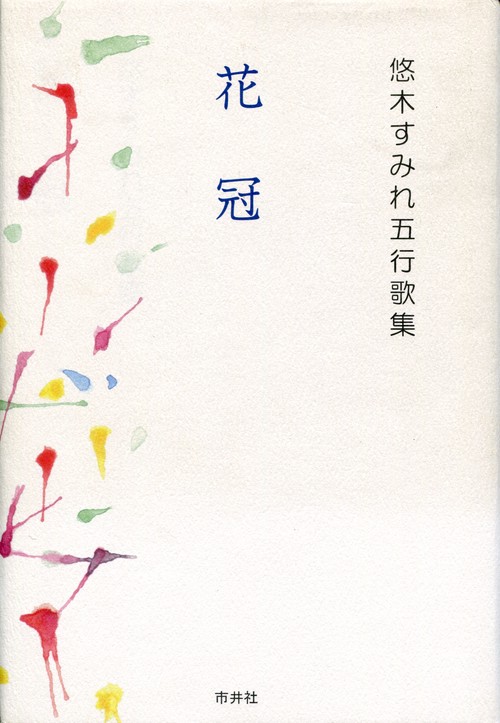 悠木すみれ五行歌集
花冠
市井社